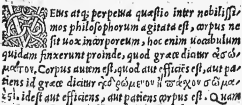 VEtus atq; perpetua quæstio inter nobilissi-
mos philosophorum agitata est, corpus ne
sit uox incorporeum, hoc enim uocabulum
quidam finxerunt proinde, quod græce dicitur ἀσώ-
ματον. Corpus autem est, quod aut efficiēs est, aut pa-
tiens id græce dicitur
idest aut efficiens, aut patiens corpus est Quam